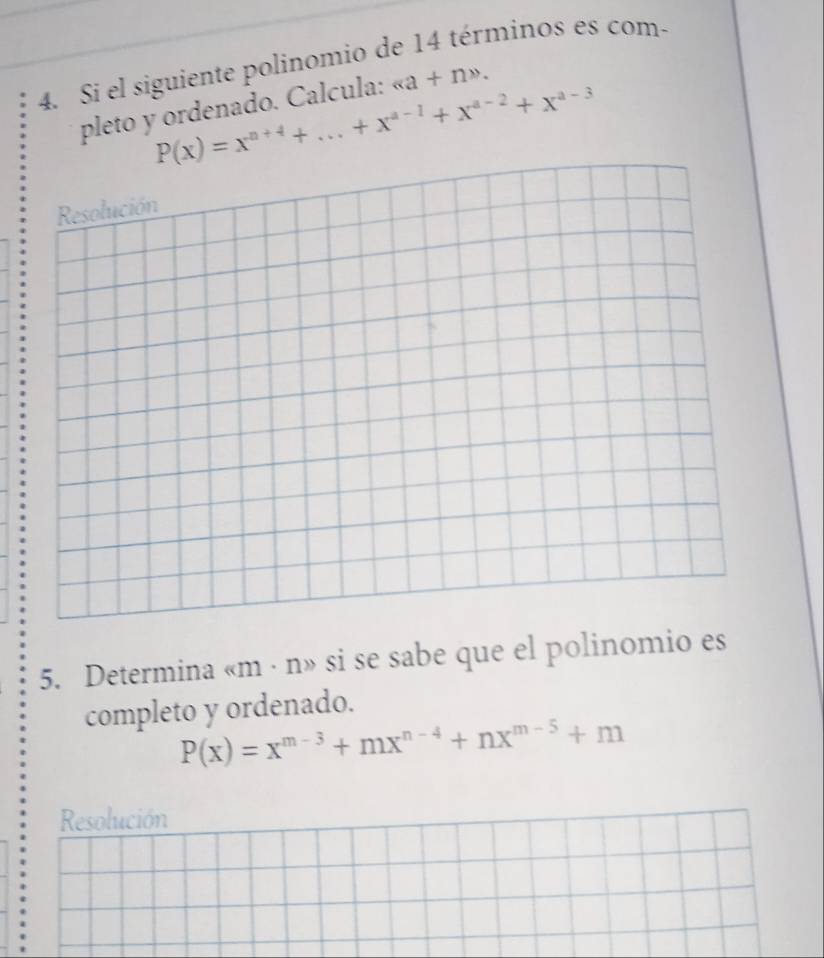 4. Si el siguiente polinomio de 14 términos es com-
pleto y ordenado. Calcula: «a + n».
P(x) = xⁿ⁺⁴ + ... + xᵃ⁻¹ + xᵃ⁻² + xᵃ⁻³
Resolución
5. Determina «m · n» si se sabe que el polinomio es
completo y ordenado.
P(x) = xᵐ⁻³ + mxⁿ⁻⁴ + nxᵐ⁻⁵ + m
Resolución